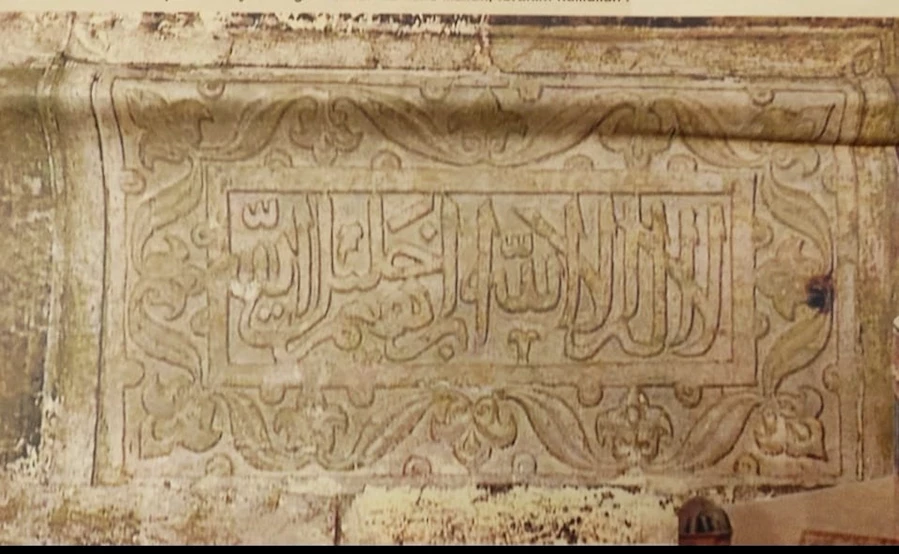 لا اله الا الله ابراهيم خليل الله